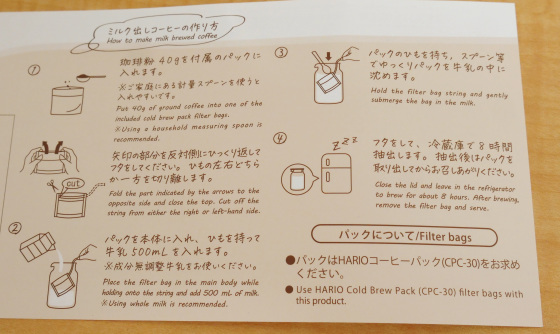 ミルク出しコーヒーの作り方
How to make milk brewed coffee
①
珈琲粉40gを付属のパックに
入れます。
※ご家庭にある計量スプーンを使うと
入れやすいです。
Put 40g of ground coffee into one of the
included cold brew pack filter bags.
※Using a household measuring spoon is
recommended.
矢印の部分を反対側にひっくり返して
フタをしてください。ひもの左右どちら
か一方を切り離します。
Fold the part indicated by the arrows to the
opposite side and close the top. Cut off the
string from either the right or left-hand side.
cut
②
パックを本体に入れ、ひもを持って
牛乳500mLを入れます。
※成分無調整牛乳をお使いください。
Place the filter bag in the main body while
holding onto the string and add 500 mL of milk.
※Using whole milk is recommended.
③
パックのひもを持ち、スプーン等
でゆっくりパックを牛乳の中に
沈めます。
Hold the filter bag string and gently
submerge the bag in the milk.
④
zzz
フタをして、冷蔵庫で8時間
抽出します。抽出後はパックを
取り出してからお召しあがりください。
Close the lid and leave in the refrigerator
to brew for about 8 hours. After brewing,
remove the filter bag and serve.
パックについて/Filter bags
●パックはHARIOコーヒーパック(CPC-30)をお求め
ください。
● Use HARIO Cold Brew Pack (CPC-30) filter bags with
this product.